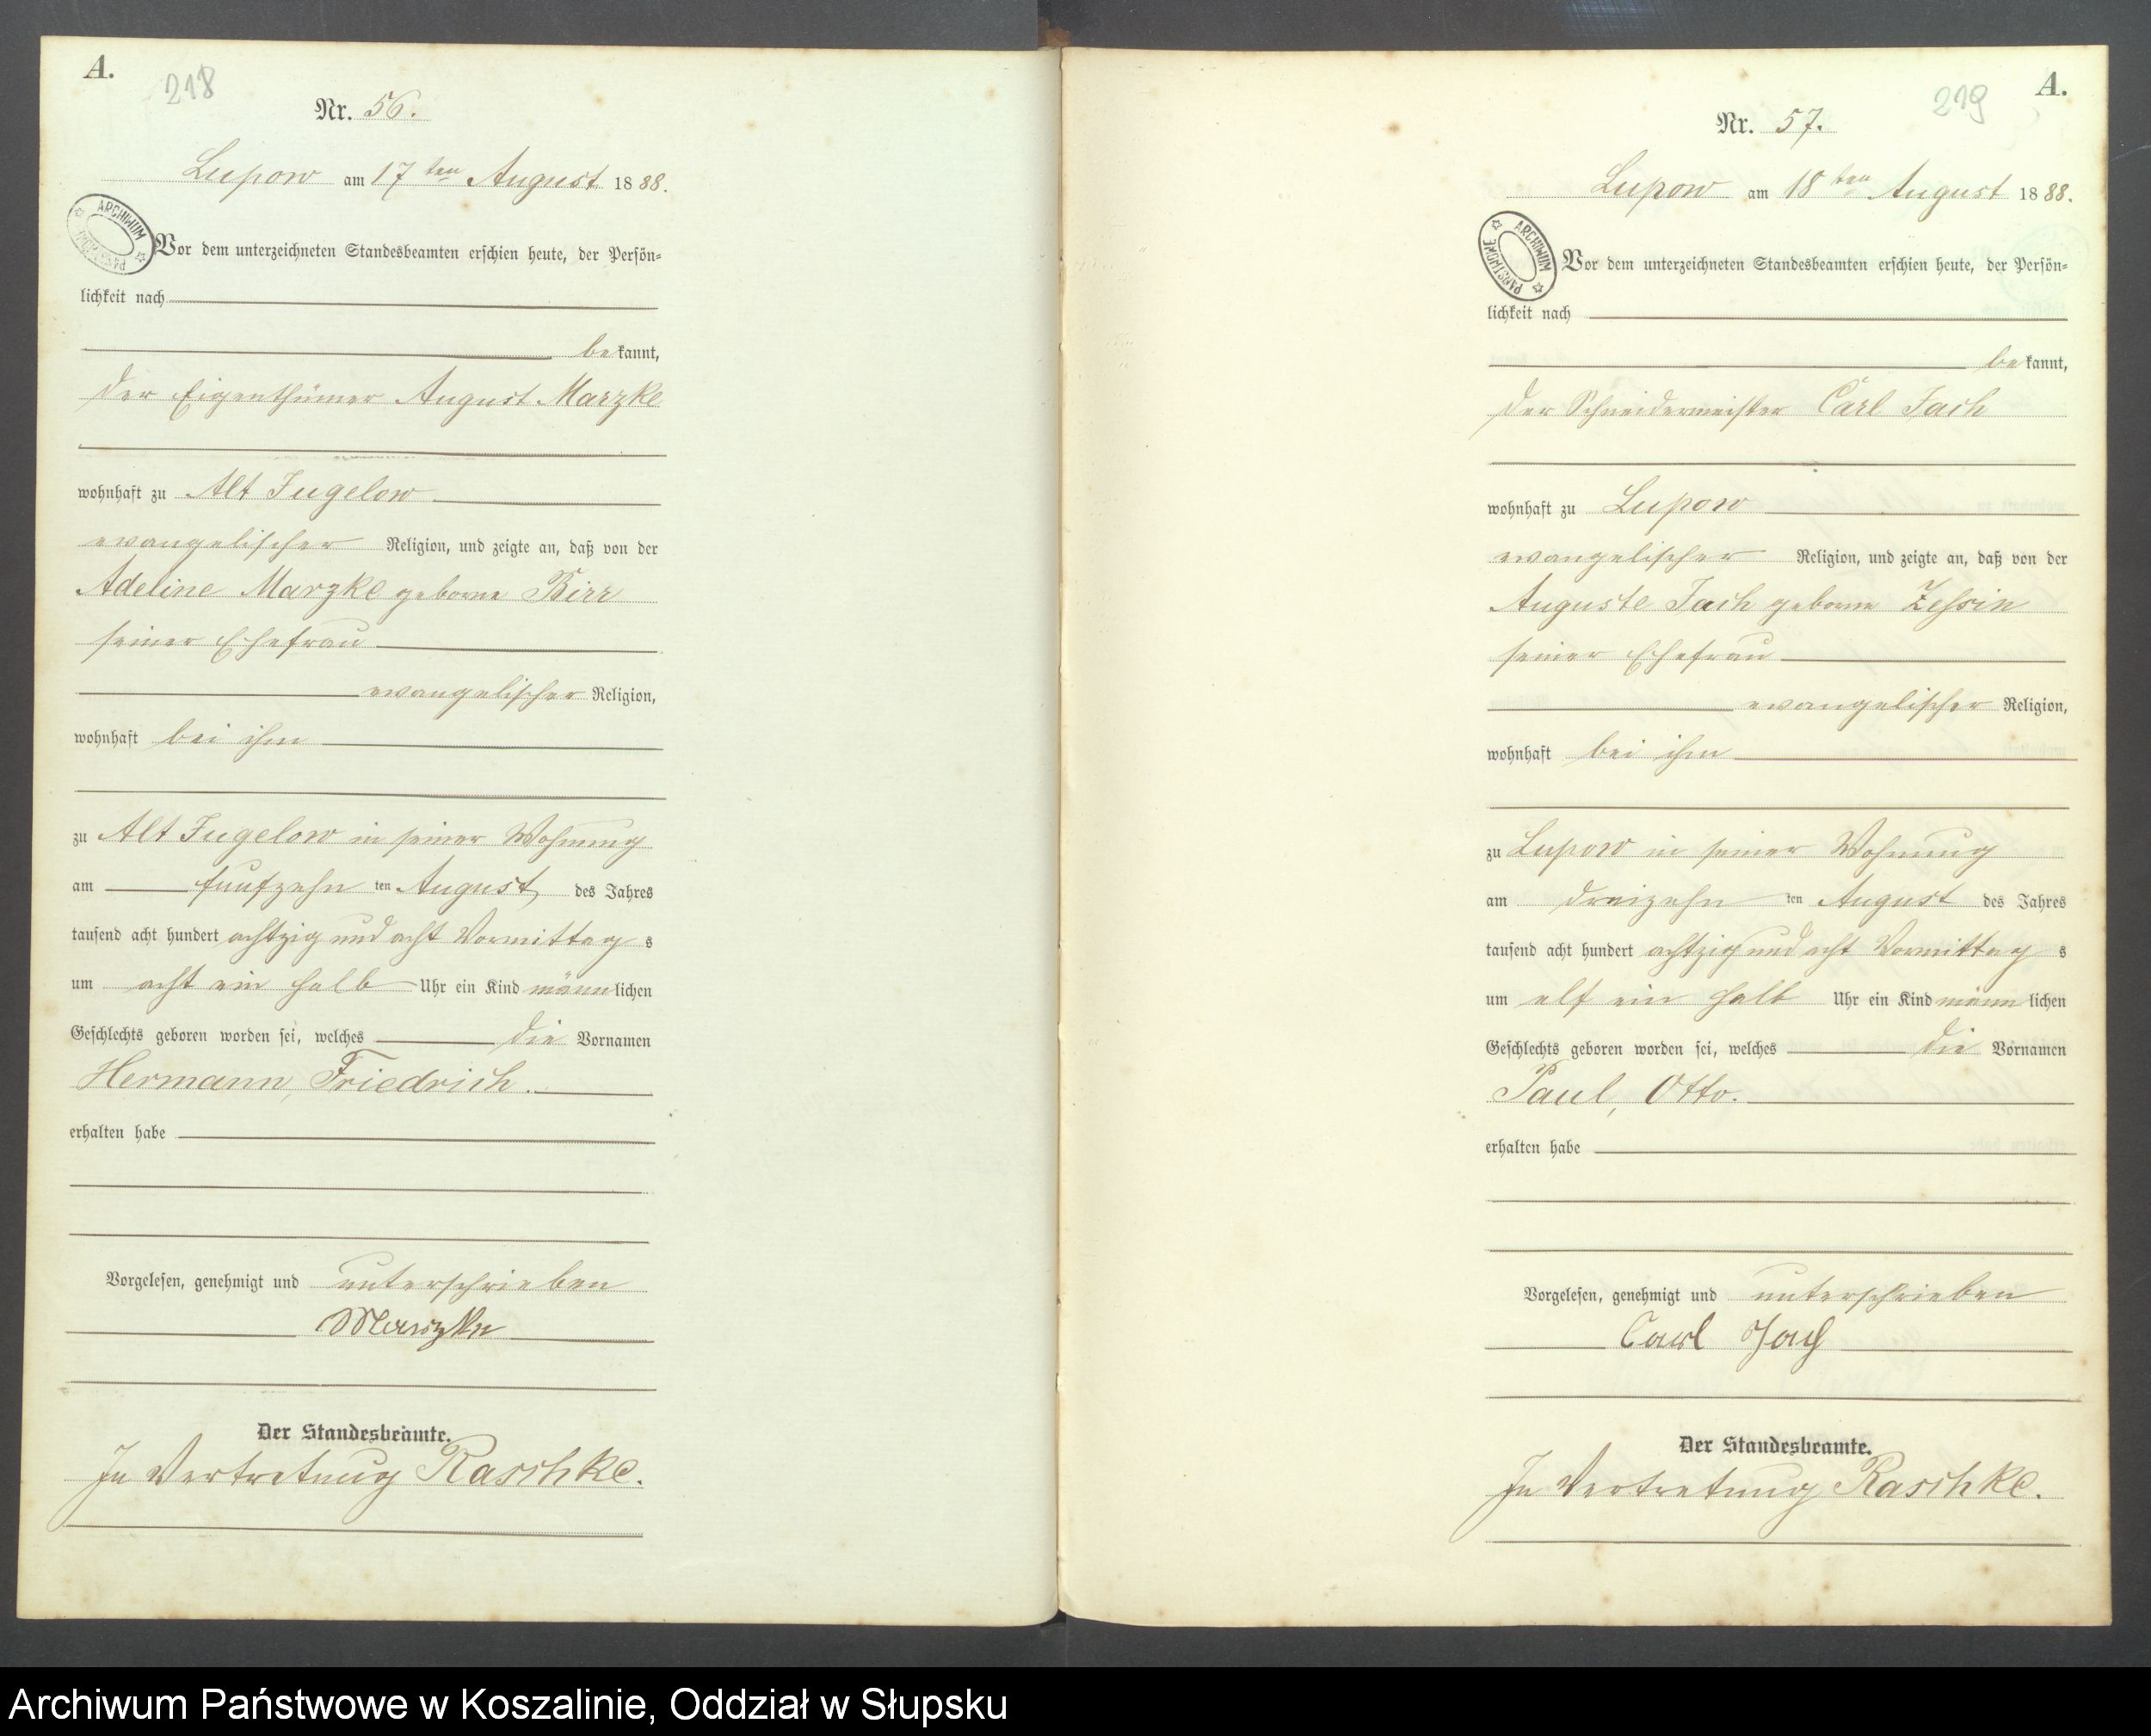 A.
218
Nr. 56.
Lupow am 17 ten August 1888.
ARCHIWUM PAŃSTWOWE
Vor dem unterzeichneten Standesbeamten erschien heute, der Persön-
lichkeit nach
bekannt,
der Eigenthümer August Marzke
wohnhaft zu Alt Jugelow
evangelischer Religion, und zeigte an, daß von der
Adeline Marzke geborne Birr
seiner Ehefrau
evangelischer Religion,
wohnhaft bei ihm
zu Alt Jugelow in seiner Wohnung
am fünfzehn ten August des Jahres
tausend acht hundert achtzig und acht Vormittag s
um acht ein halb Uhr ein Kind männlichen
Geschlechts geboren worden sei, welches die Vornamen
Hermann, Friedrich.
erhalten habe
Vorgelesen, genehmigt und unterschrieben
Marzke
Der Standesbeamte.
In Vertretung Raschke.
A.
219
Nr. 57.
Lupow am 18 ten August 1888.
ARCHIWUM PAŃSTWOWE
Vor dem unterzeichneten Standesbeamten erschien heute, der Persön-
lichkeit nach
bekannt,
der Schneidermeister Carl Jach
wohnhaft zu Lupow
evangelischer Religion, und zeigte an, daß von der
Auguste Jach geborne Zessin
seiner Ehefrau
evangelischer Religion,
wohnhaft bei ihm
zu Lupow in seiner Wohnung
am dreizehn ten August des Jahres
tausend acht hundert achtzig und acht Vormittag s
um elf ein halb Uhr ein Kind männlichen
Geschlechts geboren worden sei, welches die Vornamen
Paul, Otto.
erhalten habe
Vorgelesen, genehmigt und unterschrieben
Carl Jach
Der Standesbeamte.
In Vertretung Raschke.
Archiwum Państwowe w Koszalinie, Oddział w Słupsku